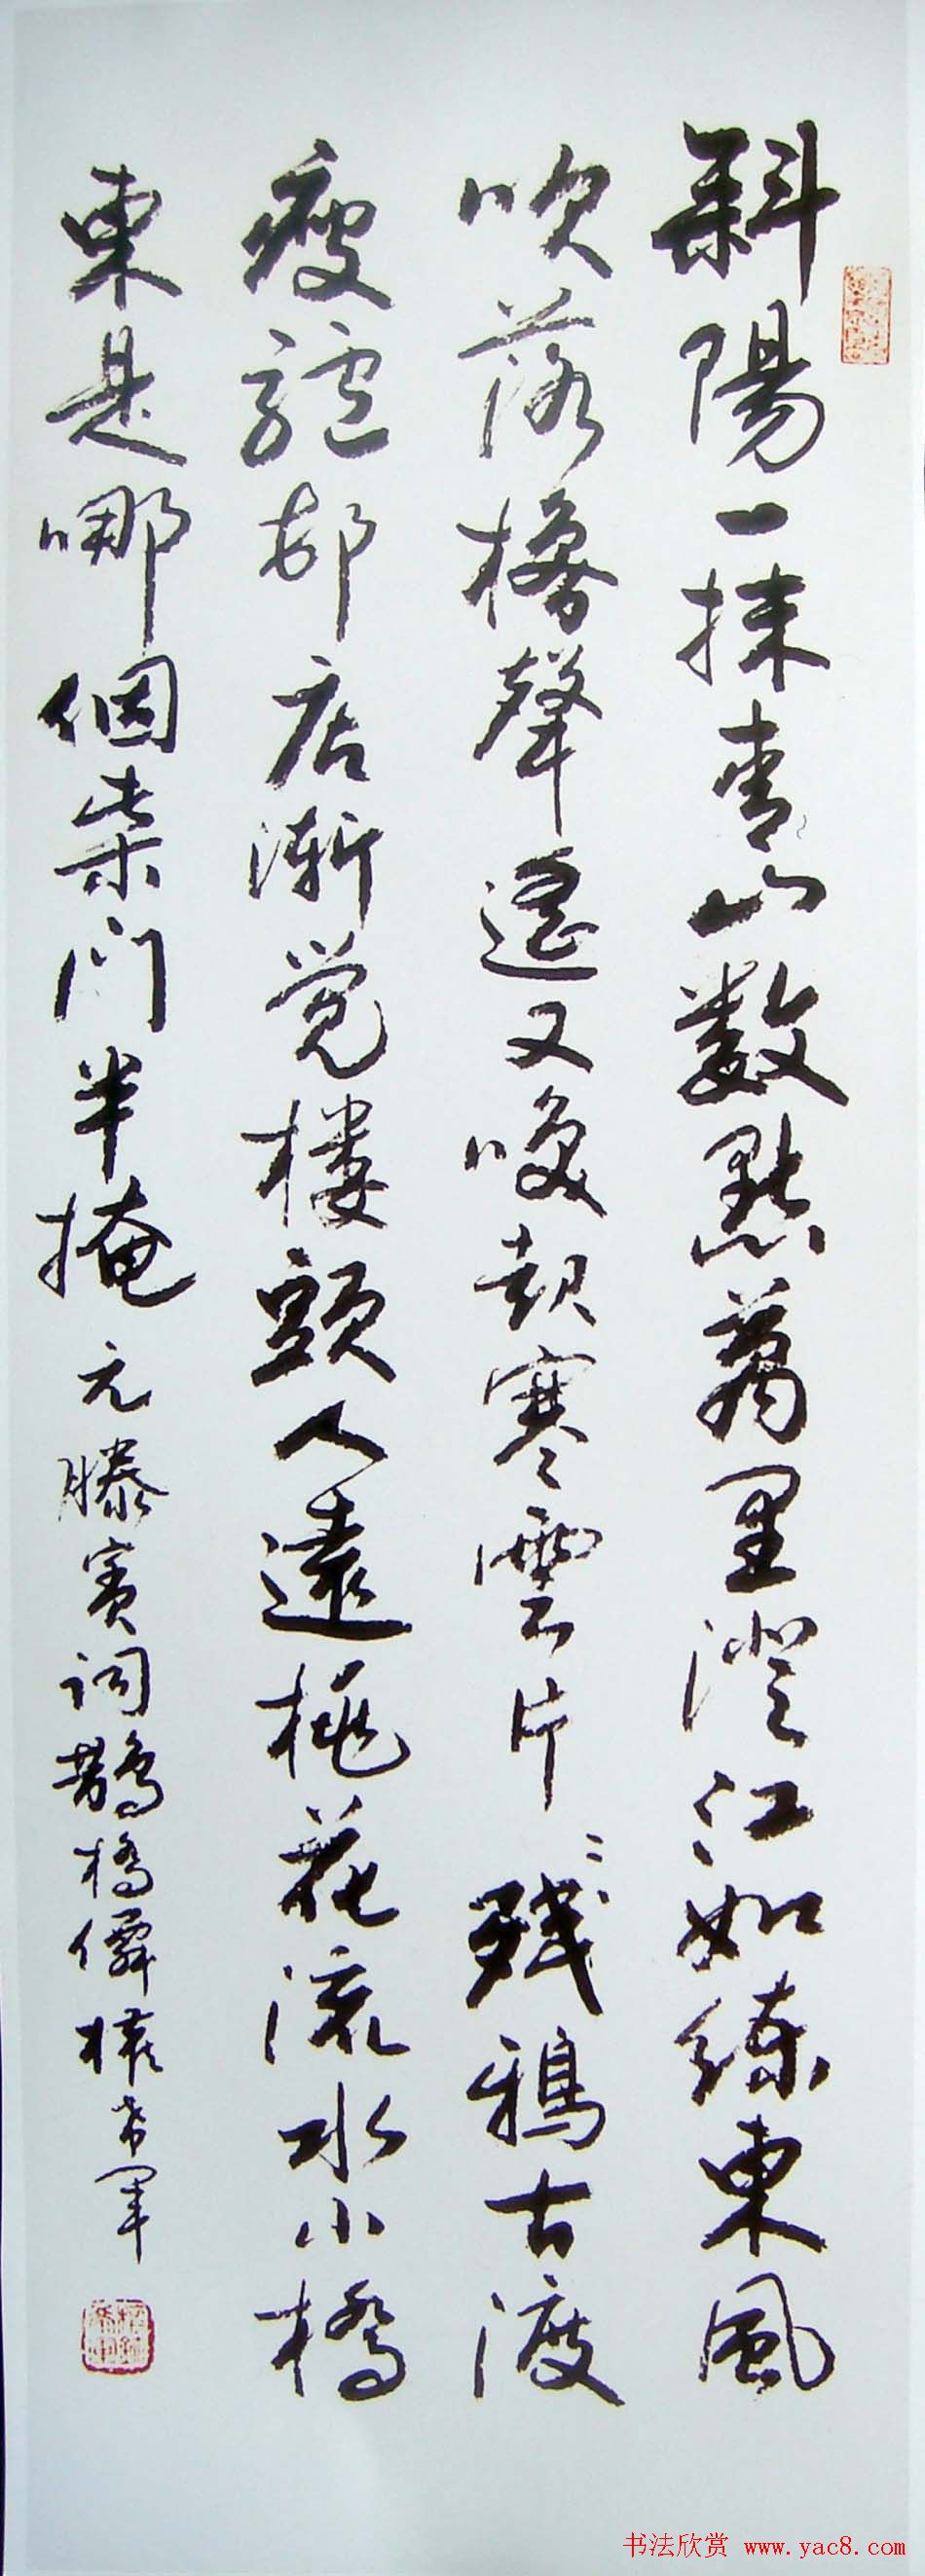 斜陽一抹青山數點萬里澄江如練東風
吹落櫓聲遥又喚起寒雲片〻殘鴉古渡
瘦驢邨店漸覺楼頭人遠桃花流水小橋
東是哪個柴门半掩
元滕賓词鵲橋僊權希軍
书法欣赏 www.yac8.com